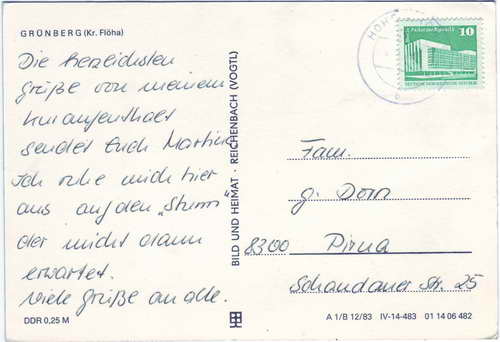 GRÜNBERG (Kr. Flöha)
Die herzlichsten
Grüße von meinem
Kuraufenthalt
sendet Euch Martin.
Ich ruhe mich hier
aus auf den "Sturm"
der mich dann
erwartet.
Viele Grüße an alle.
DDR 0,25 M
BILD UND HEIMAT · REICHENBACH (VOGTL)
HOH
10
DEUTSCHE DEMOKRATISCHE REPUBLIK
Fam.
G. Dorn
8300 Pirna
Schandauer Str. 25
A 1/B 12/83 IV-14-483 01 14 06 482